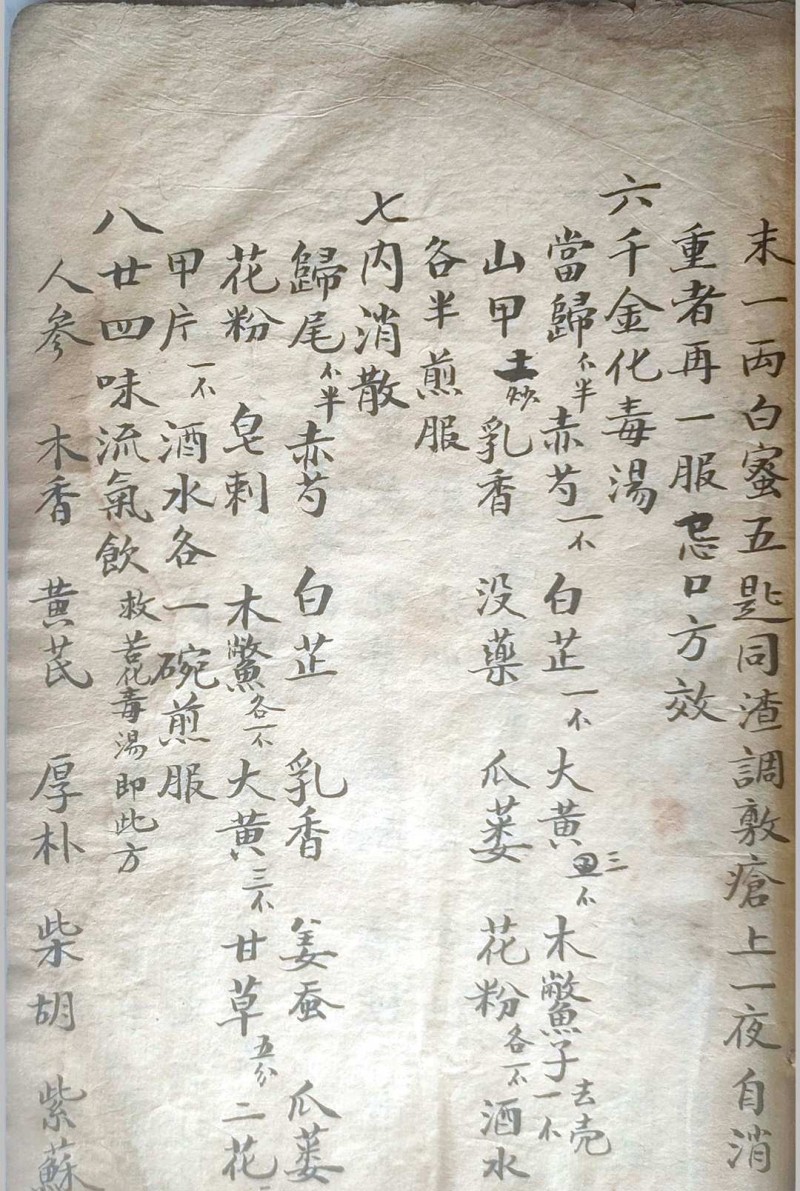 末一両白蜜五匙同渣調敷瘡上一夜自消
重者再一服忌口方效
六千金化毒湯
當歸不半赤芍一不白芷一不大黃三不木鱉子去壳一不
山甲土炒乳香没藥瓜蒌花粉各一不酒水
各半煎服
七内消散
歸尾不半赤芍白芷乳香姜蚕瓜蒌
花粉皂刺木鱉各一不大黃三不甘草五分二花
甲片一不酒水各一碗煎服
八廿四味流氣飲救苦化毒湯即此方
人参木香黄芪厚朴柴胡紫蘇